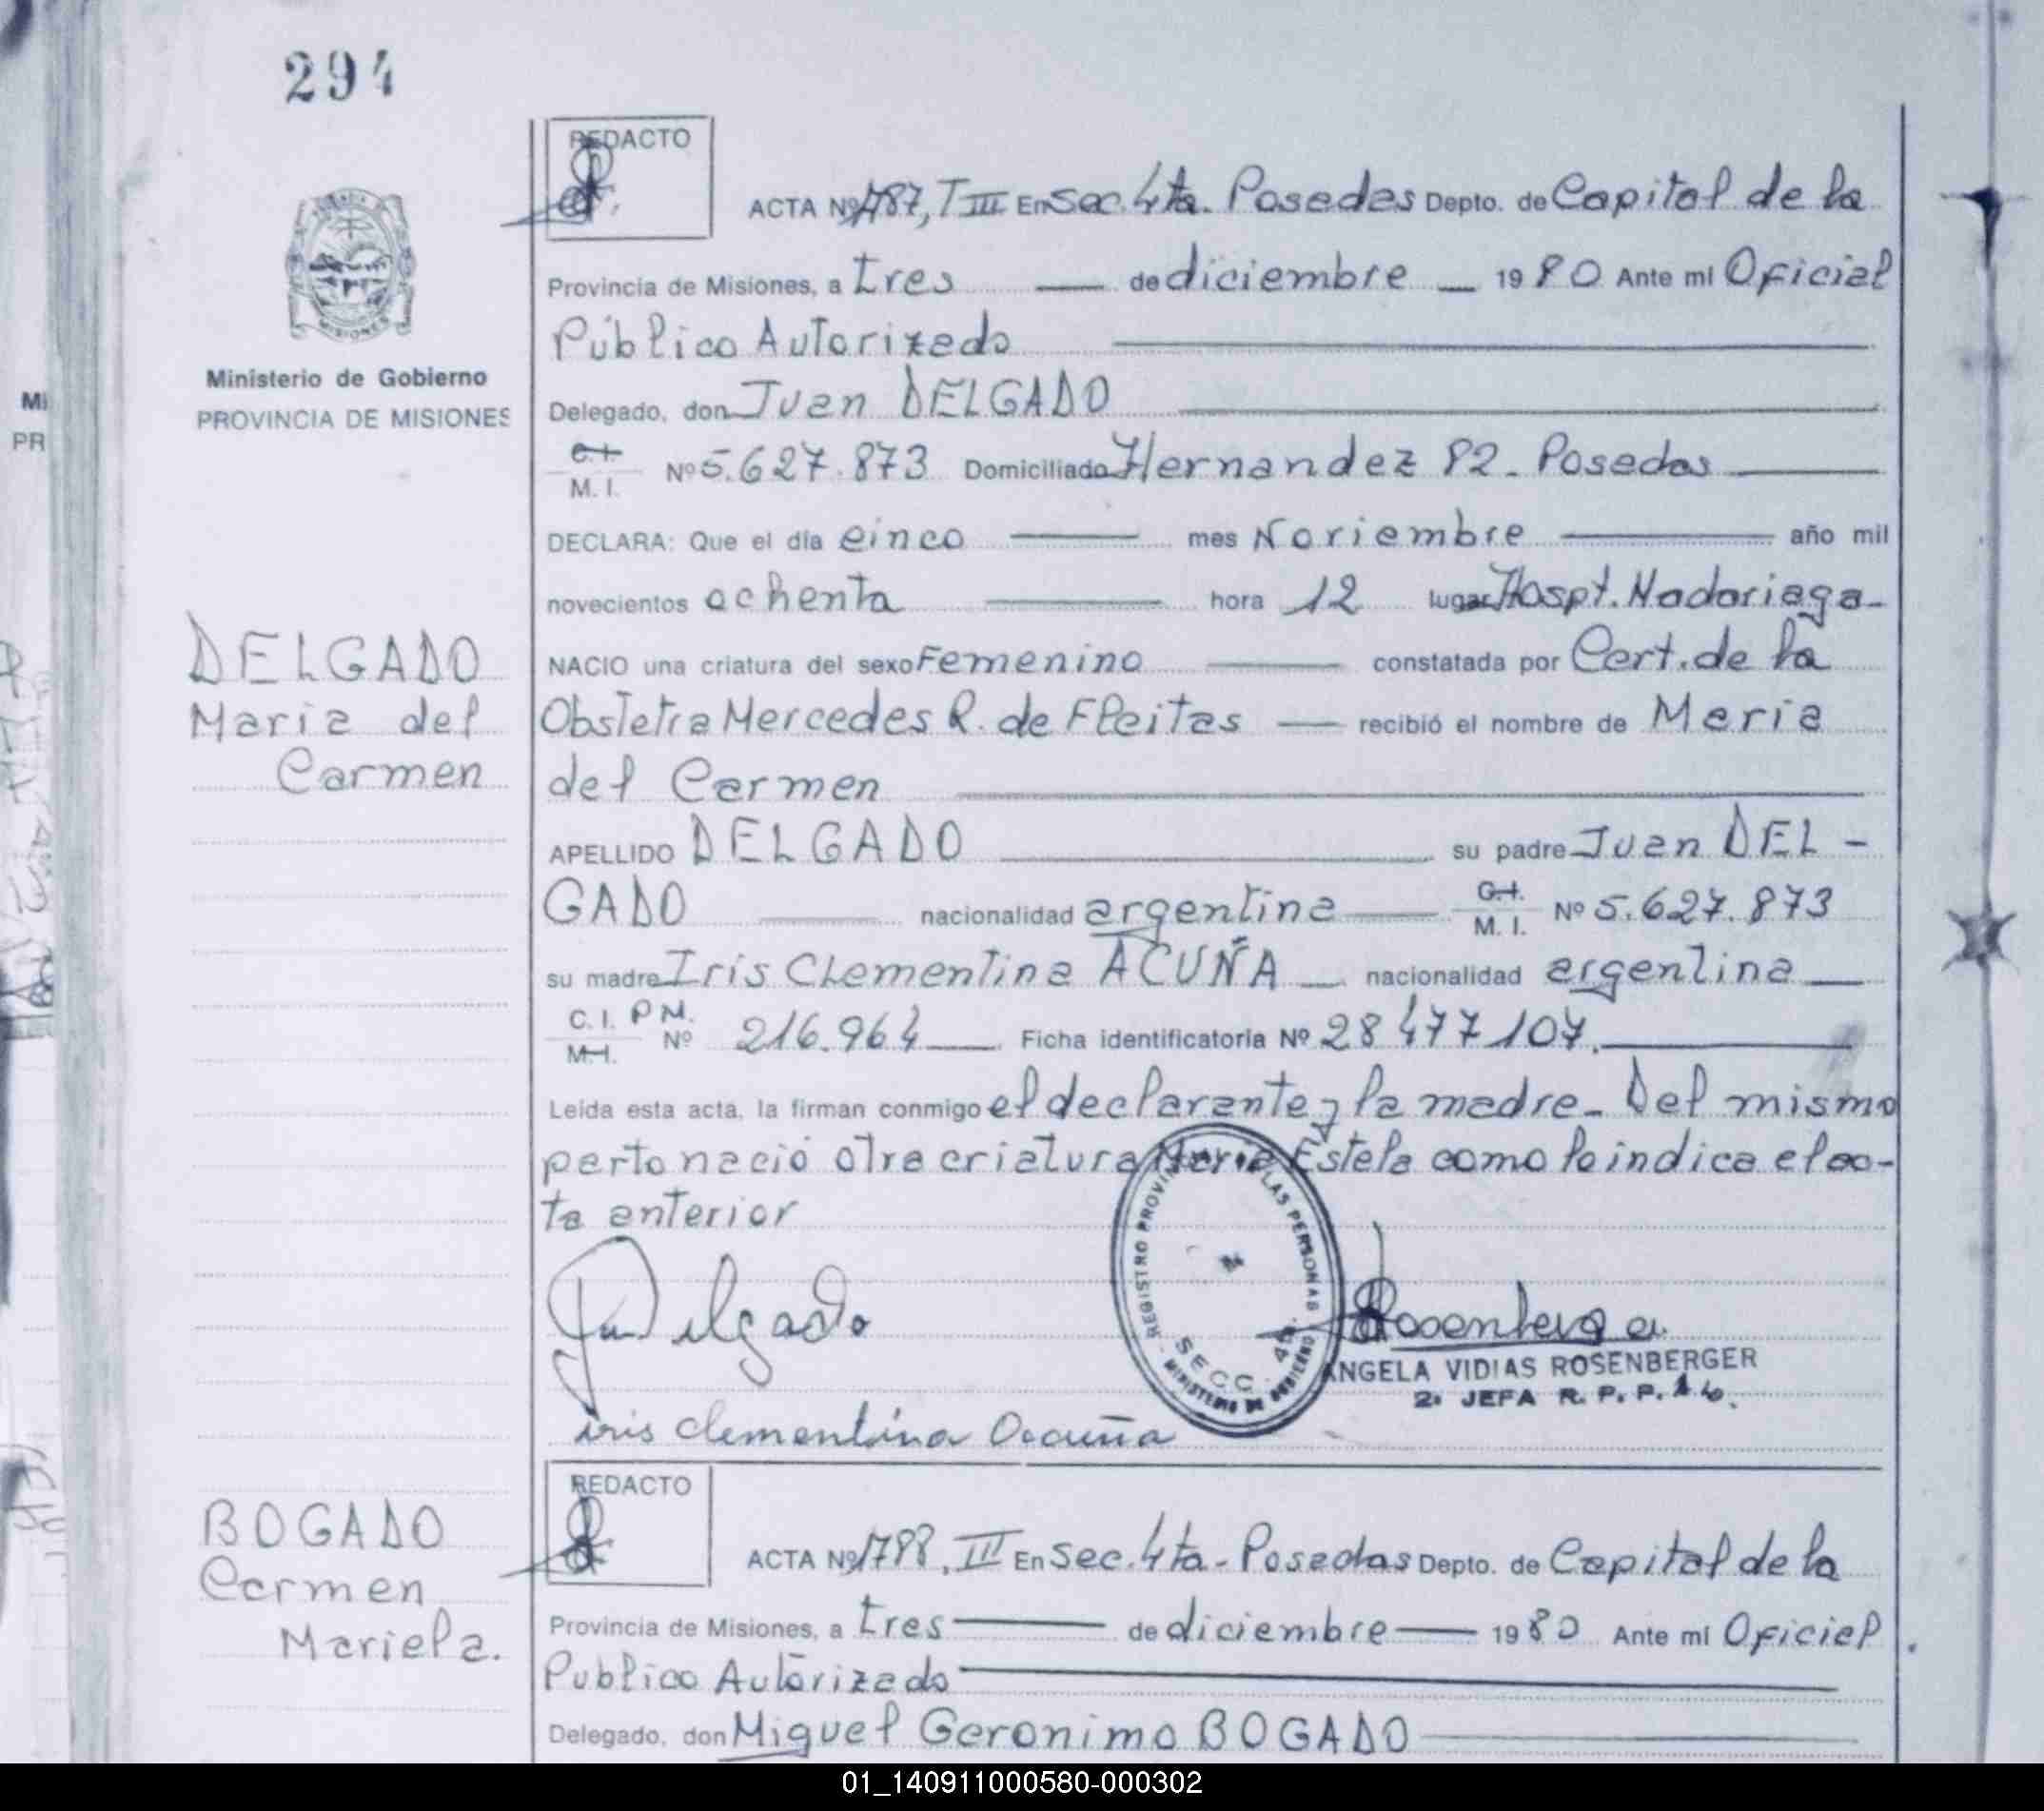 294
REDACTO
ACTA Nº 1787, T III En Sec. 4ta. Posadas Depto. de Capital de la
Provincia de Misiones, a tres de diciembre 1980 Ante mí Oficial
Público Autorizado
Ministerio de Gobierno
PROVINCIA DE MISIONES
Delegado, don Juan DELGADO
C.I. M.I. Nº 5.627.873 Domiciliado Hernandez 82 - Posadas
DECLARA: Que el día cinco mes Noviembre año mil
novecientos ochenta hora 12 lugar Hospt. Madariaga -
DELGADO
Maria del
Carmen
NACIO una criatura del sexo Femenino constatada por Cert. de la
Obstetra Mercedes R. de Fleitas recibió el nombre de Maria
del Carmen
APELLIDO DELGADO su padre Juan DEL-
GADO nacionalidad argentina C.I. M.I. Nº 5.627.873
su madre Iris Clementina ACUÑA nacionalidad argentina
C.I. M.I. P M. Nº 216.964 Ficha identificatoria Nº 28477107.
Leída esta acta, la firman conmigo el declarante y la madre - Del mismo
parto nació otra criatura Maria Estela como lo indica el ac-
ta anterior
Delgado
REGISTRO PROVINCIAL DE LAS PERSONAS
SECC. 4ta.
MINISTERIO DE GOBIERNO
Rosenberger
ANGELA VIDIAS ROSENBERGER
2. JEFA R. P. P.
iris clementina Acuña
REDACTO
BOGADO
Carmen
Mariela.
ACTA Nº 1788, III En Sec. 4ta - Posadas Depto. de Capital de la
Provincia de Misiones, a tres de diciembre 1980 Ante mí Oficial
Publico Autorizado
Delegado, don Miguel Geronimo BOGADO
MI
PR
01_140911000580-000302